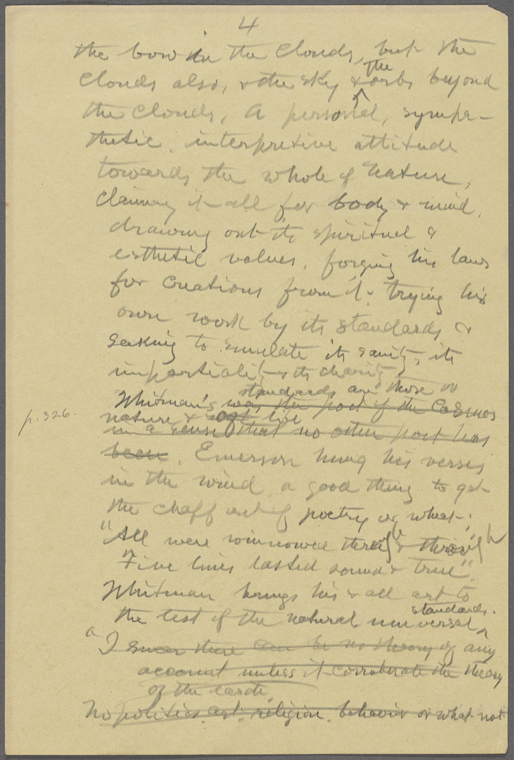 4
the bow in the clouds, but the
clouds also, & the sky & the orbs beyond
the clouds. A personal, sympa-
thetic, interpretive attitude
towards the whole of Nature,
claiming it all for body & mind,
drawing out its spiritual &
esthetic values, forging his laws
for creations from it, trying his
own work by its standards &
seeking to emulate its sanity, its
impartiality & its charity.
standards are those of
Whitman's was the poet of the Cosmos
nature & life
p. 326.
in a sense that no other poet has
been. Emerson hung his verses
in the wind, a good thing to get
the chaff out of poetry or wheat:
"All were winnowed through & through
Five lines lasted sound & true".
Whitman brings his & all art to
the test of the natural universal standards.
"I swear there can be no theory of any
account unless it corroborate the theory
of the earth
No politics, art, religion, behavior or what not